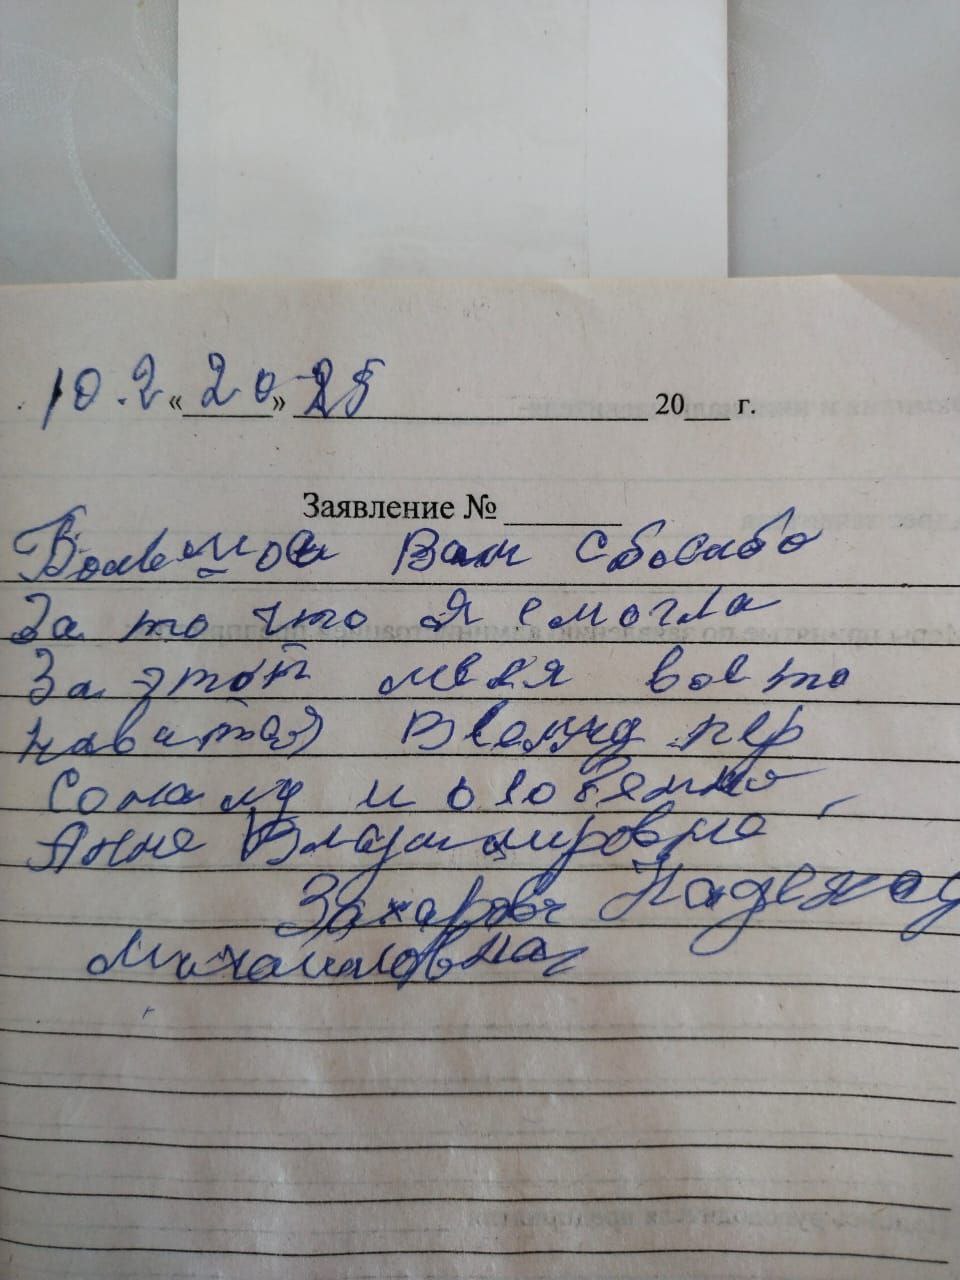 10.2 « 20 » 25 20 г.
Заявление №
Большое Вам сбосибо
За то что я смогла
За этот меся восто
навится Всему пер
соналу и особенно
Анне Владимировне
Захарова Надежда
Михайловна